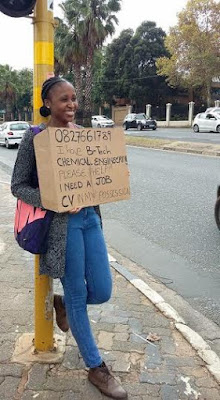 0827661789
I have B-Tech
CHEMICAL ENGINEERING
PLEASE HELP
I NEED A JOB
CV IN MY POSSESSION